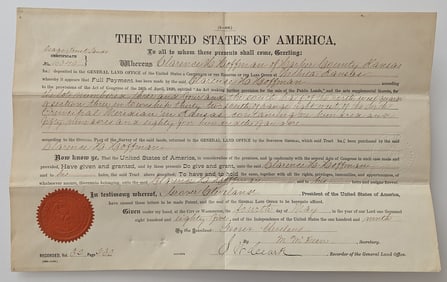 THE UNITED STATES OF AMERICA,
To all to whom these presents shall come, Greeting:
CERTIFICATE
Whereas Clarence H. Hoffman of Harper County Kansas
ha deposited in the GENERAL LAND OFFICE of the United States a Certificate of the Register of the Land Office at Wichita Kansas
whereby it appears that Full Payment has been made by the said Clarence H. Hoffman according
to the provisions of the Act of Congress of the 24th of April, 1820, entitled "An Act making further provision for the sale of the Public Lands," and the acts supplemental thereto, for
and the south half of the north west quarter
of section three in township thirty two south of range eight west of the Sixth
Principal Meridian in Kansas containing one hundred and
fifty nine acres and eighty hundredths of an acre
according to the Official Plat of the Survey of the said lands, returned to the GENERAL LAND OFFICE by the Surveyor General, which said Tract has been purchased by the said
Clarence H. Hoffman
Now know ye, That the United States of America, in consideration of the premises, and in conformity with the several Acts of Congress in such case made and
provided, Have given and granted, and by these presents Do give and grant, unto the said Clarence H. Hoffman
and to his heirs, the said Tract above described; To have and to hold the same, together with all the rights, privileges, immunities, and appurtenances, of
whatsoever nature, thereunto belonging, unto the said Clarence H. Hoffman and to his heirs and assigns forever.
In testimony whereof, I Grover Cleveland, President of the United States of America,
have caused these letters to be made Patent, and the seal of the GENERAL LAND OFFICE to be hereunto affixed.
Given under my hand, at the CITY OF WASHINGTON, the fourth day of May, in the year of our Lord one thousand
eight hundred and eighty five, and of the Independence of the United States the one hundred and ninth
By the President: Grover Cleveland
By M. McKean, Secretary.
S. W. Clark, Recorder of the General Land Office.
RECORDED, Vol. Page